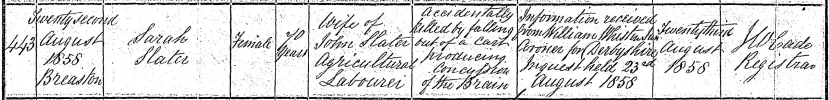 443
Twenty second
August
1858
Breaston
Sarah
Slater
Female
70
Years
Wife of
John Slater
Agricultural
Labourer
Accidentally
killed by falling
out of a cart
producing
Concussion
of the Brain
Information received
from William Whiston
Coroner for Derbyshire
Inquest held 23rd
August 1858
Twenty third
August
1858
Registrar